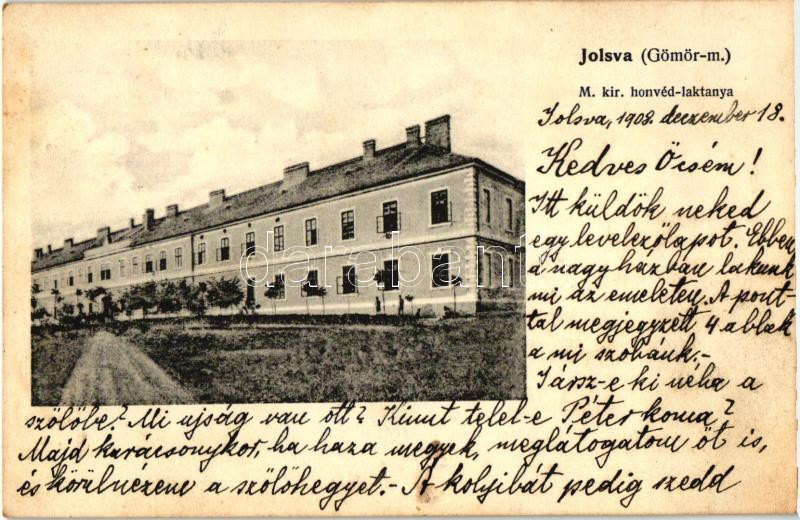 Jolsva (Gömör-m.)
M. kir. honvéd-laktanya
Jolsva, 1908. deczember 18.
Kedves Öcsém!
Itt küldök neked
egy levelezőlapot. Ebben
a nagy házban lakunk
mi az emeleten. A pont-
tal megjegyzett 4 ablak
a mi szobánk.-
Jársz-e ki néha a
szölöbe? Mi ujság van ott? Kinnt telel-e Péter koma?
Majd karácsonykor, ha haza megyek, meglátogatom öt is,
és körülnézene a szölöhegyet.- A kolyibát pedig szedd
darabanth.com